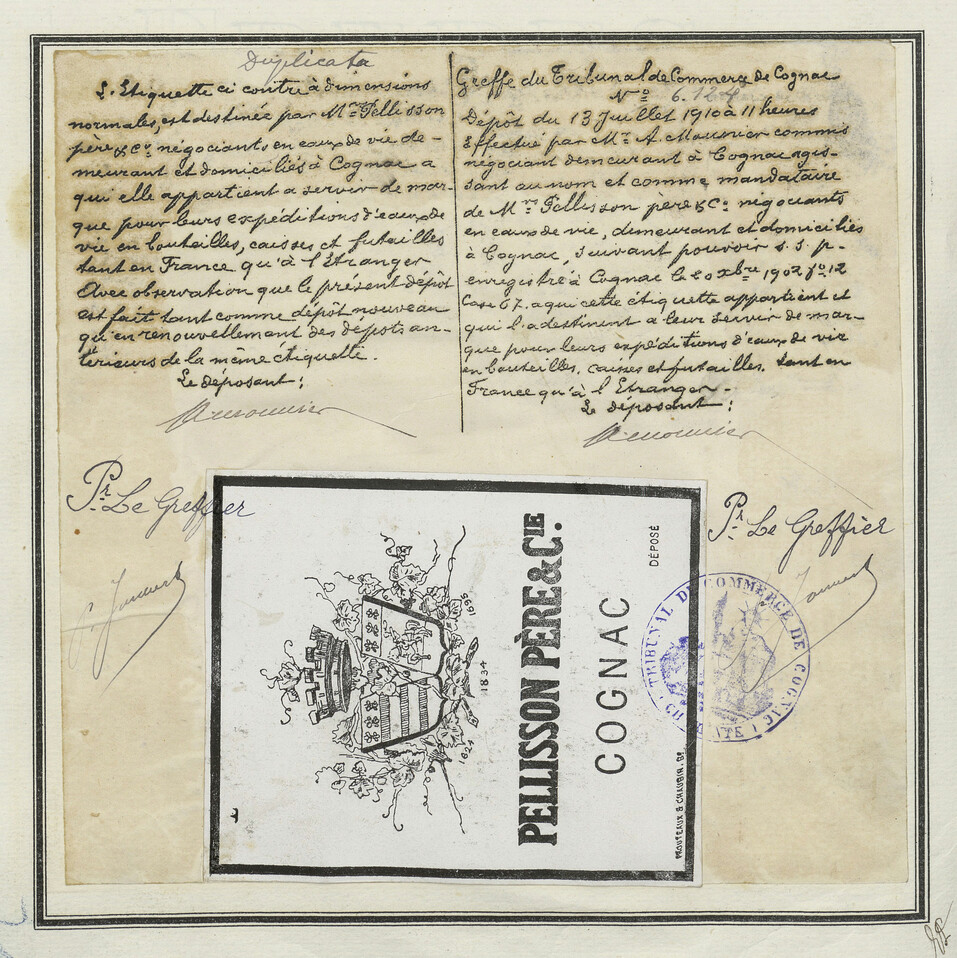 Duplicata
L'Etiquette ci contre à dimensions
normales, est destinée par Mrs Pellisson
père & Co négociants en eaux de vie de-
meurant et domiciliés à Cognac a
qui elle appartient a servir de mar-
que pour leurs expéditions d'eaux de
vie en bouteilles, caisses et futailles
tant en France qu'à l'Etranger
Avec observation que le présent dépôt
est fait tant comme dépôt nouveau
qu'en renouvellement des dépôts an-
térieurs de la même étiquette.
Le déposant :
AMounier
Pr Le Greffier
Greffe du Tribunal de Commerce de Cognac
No 6.124
Dépôt du 13 Juillet 1910 à 11 heures
Effectué par Mr A. Mounier commis
négociant demeurant à Cognac agis-
sant au nom et comme mandataire
de Mrs Pellisson père & Co négociants
en eaux de vie, demeurant et domiciliés
à Cognac, suivant pouvoir s. s. p.
enregistré à Cognac le 20 Xbre 1902 fo 12
Case 67. a qui cette étiquette appartient et
qui l'adestinent a leur servir de mar-
que pour leurs expéditions d'eaux de vie
en bouteilles, caisses et futailles, tant en
France qu'à l'Etranger.-
Le déposant :
AMounier
Pr Le Greffier
TRIBUNAL DE COMMERCE DE COGNAC
CHARENTE
1624
1834
1695
PELLISSON PÈRE & CIE.
COGNAC
DÉPOSÉ
PROUTEAUX & CHAUBIN. Gr.